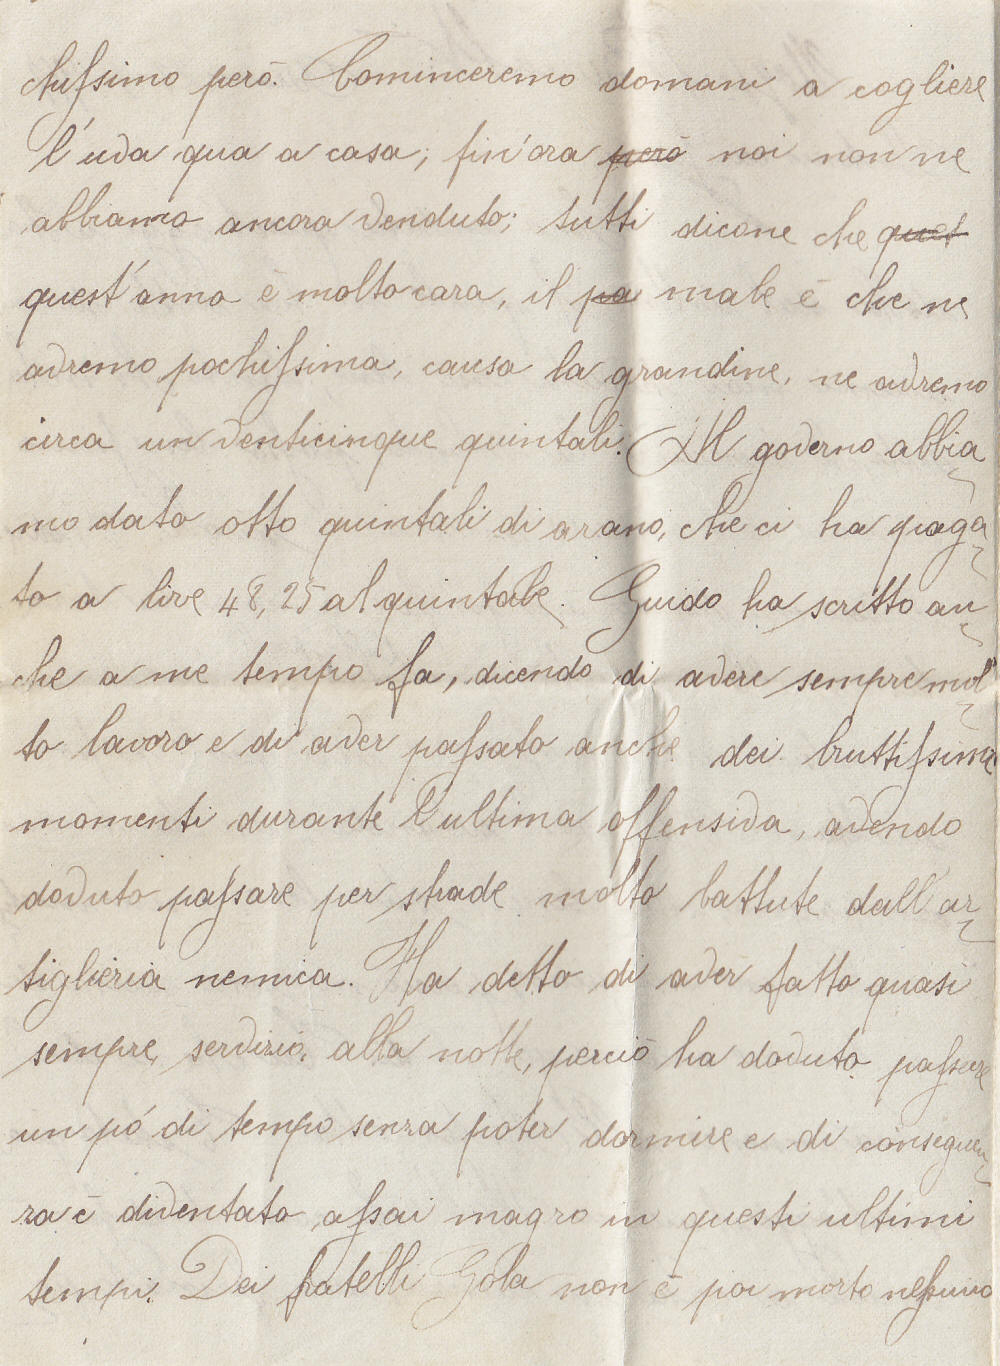 chissimo però. Cominceremo domani a cogliere
l'uva qua a casa; fin'ora però noi non ne
abbiamo ancora venduto; tutti dicone che quest
quest'anno è molto cara, il pa male è che ne
avremo pochissima, causa la grandine, ne avremo
circa un venticinque quintali. Al governo abbia
mo dato otto quintali di arano, che ci ha paga
to a lire 48,25 al quintale. Guido ha scritto an
che a me tempo fa, dicendo di avere sempre mol
to lavoro e di aver passato anche dei bruttissimi
momenti durante l'ultima offensiva, avendo
dovuto passare per strade molto battute dall'ar
tiglieria nemica. Ha detto di aver fatto quasi
sempre servizio, alla notte, perciò ha dovuto passare
un pó di tempo senza poter dormire e di conseguen
za è diventato assai magro in questi ultimi
tempi. Dei fratelli Gola non è poi morto nessuno